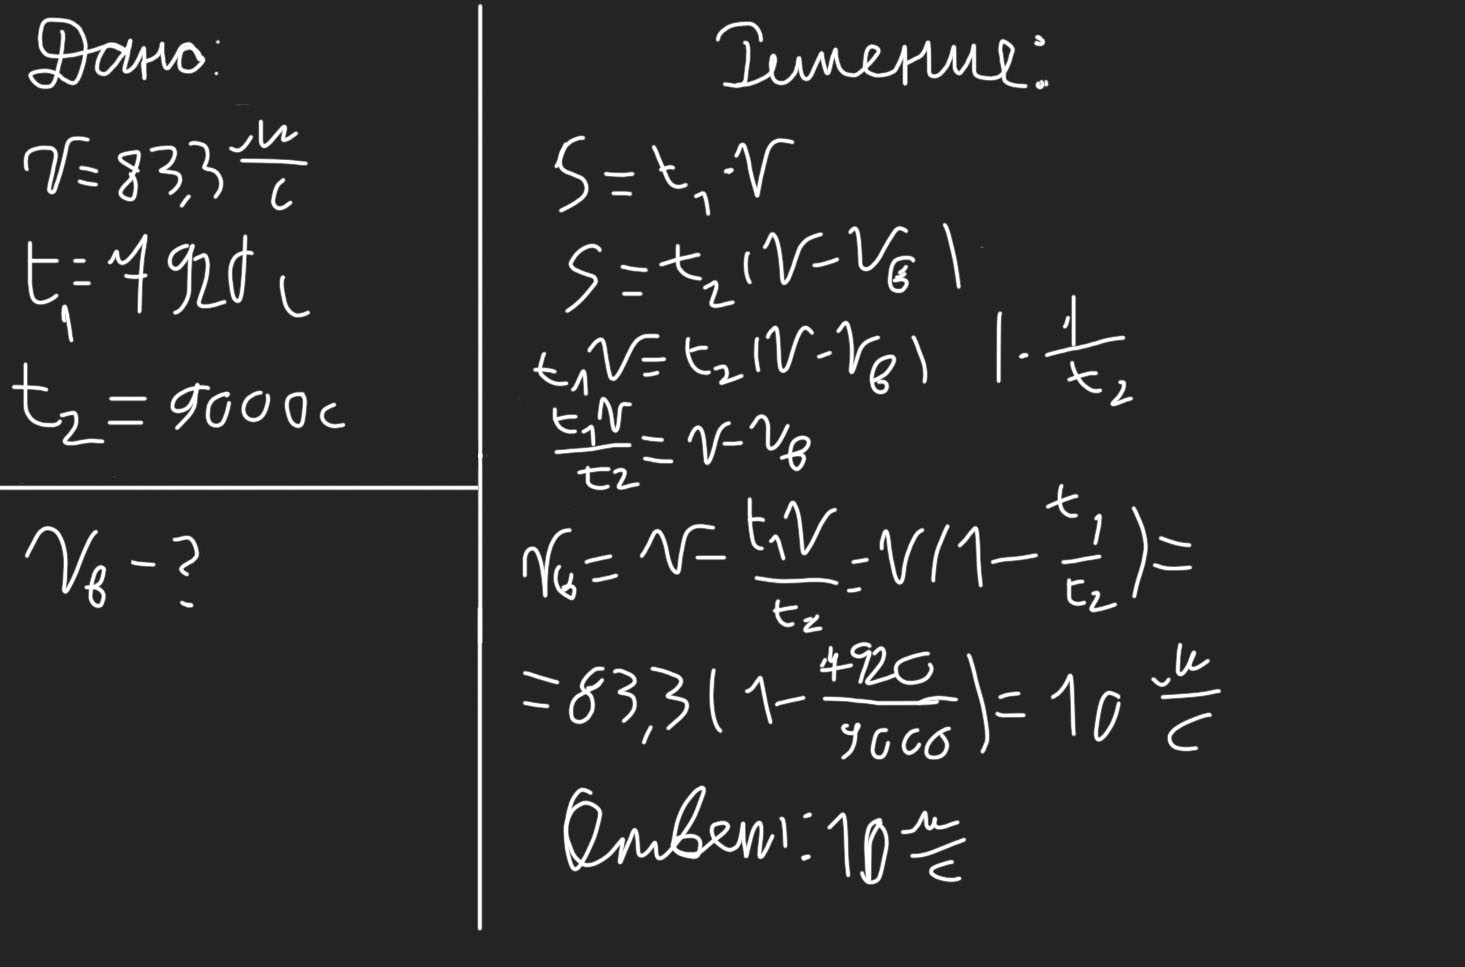 Дано:
v = 83,3 м/с
t₁ = 7920 с
t₂ = 9000 с
vв - ?
Решение:
S = t₁ · v
S = t₂ (v - vв)
t₁v = t₂ (v - vв) | · 1/t₂
t₁v/t₂ = v - vв
vв = v - t₁v/t₂ = v(1 - t₁/t₂) =
= 83,3 (1 - 7920/9000) = 10 м/с
Ответ: 10 м/с